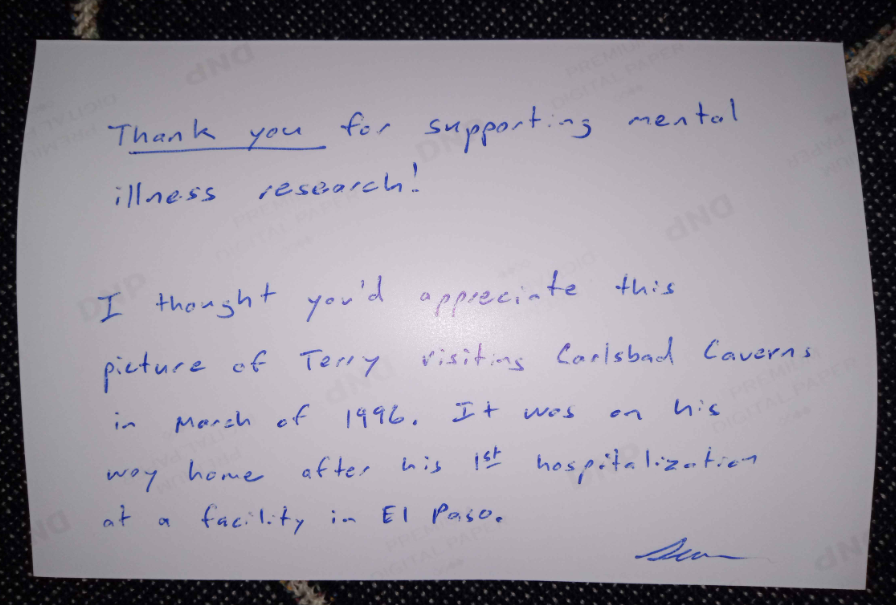 Thank you for supporting mental
illness research!
I thought you'd appreciate this
picture of Terry visiting Carlsbad Caverns
in March of 1996. It was on his
way home after his 1st hospitalization
at a facility in El Paso.
DNP
PREMIUM
DIGITAL PAPER